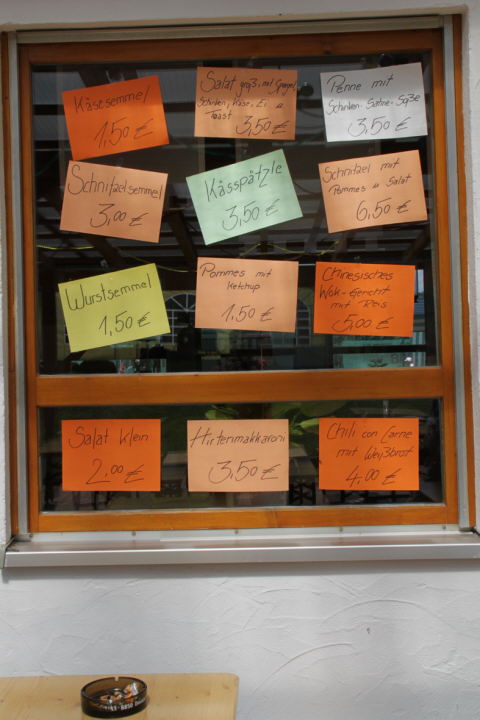 Käsesemmel
1,50 €
Salat groß, mit Spargel
Schinken, Käse, Ei u
Toast
3,50 €
Penne mit
Schinken-Sahne-Soße
3,50 €
Schnitzelsemmel
3,00 €
Kässpätzle
3,50 €
Schnitzel mit
Pommes u Salat
6,50 €
Wurstsemmel
1,50 €
Pommes mit
Ketchup
1,50 €
Chinesisches
Wok-Gericht
mit Reis
5,00 €
Salat Klein
2,00 €
Hirtenmakkaroni
3,50 €
Chili con Carne
mit Weißbrot
4,00 €